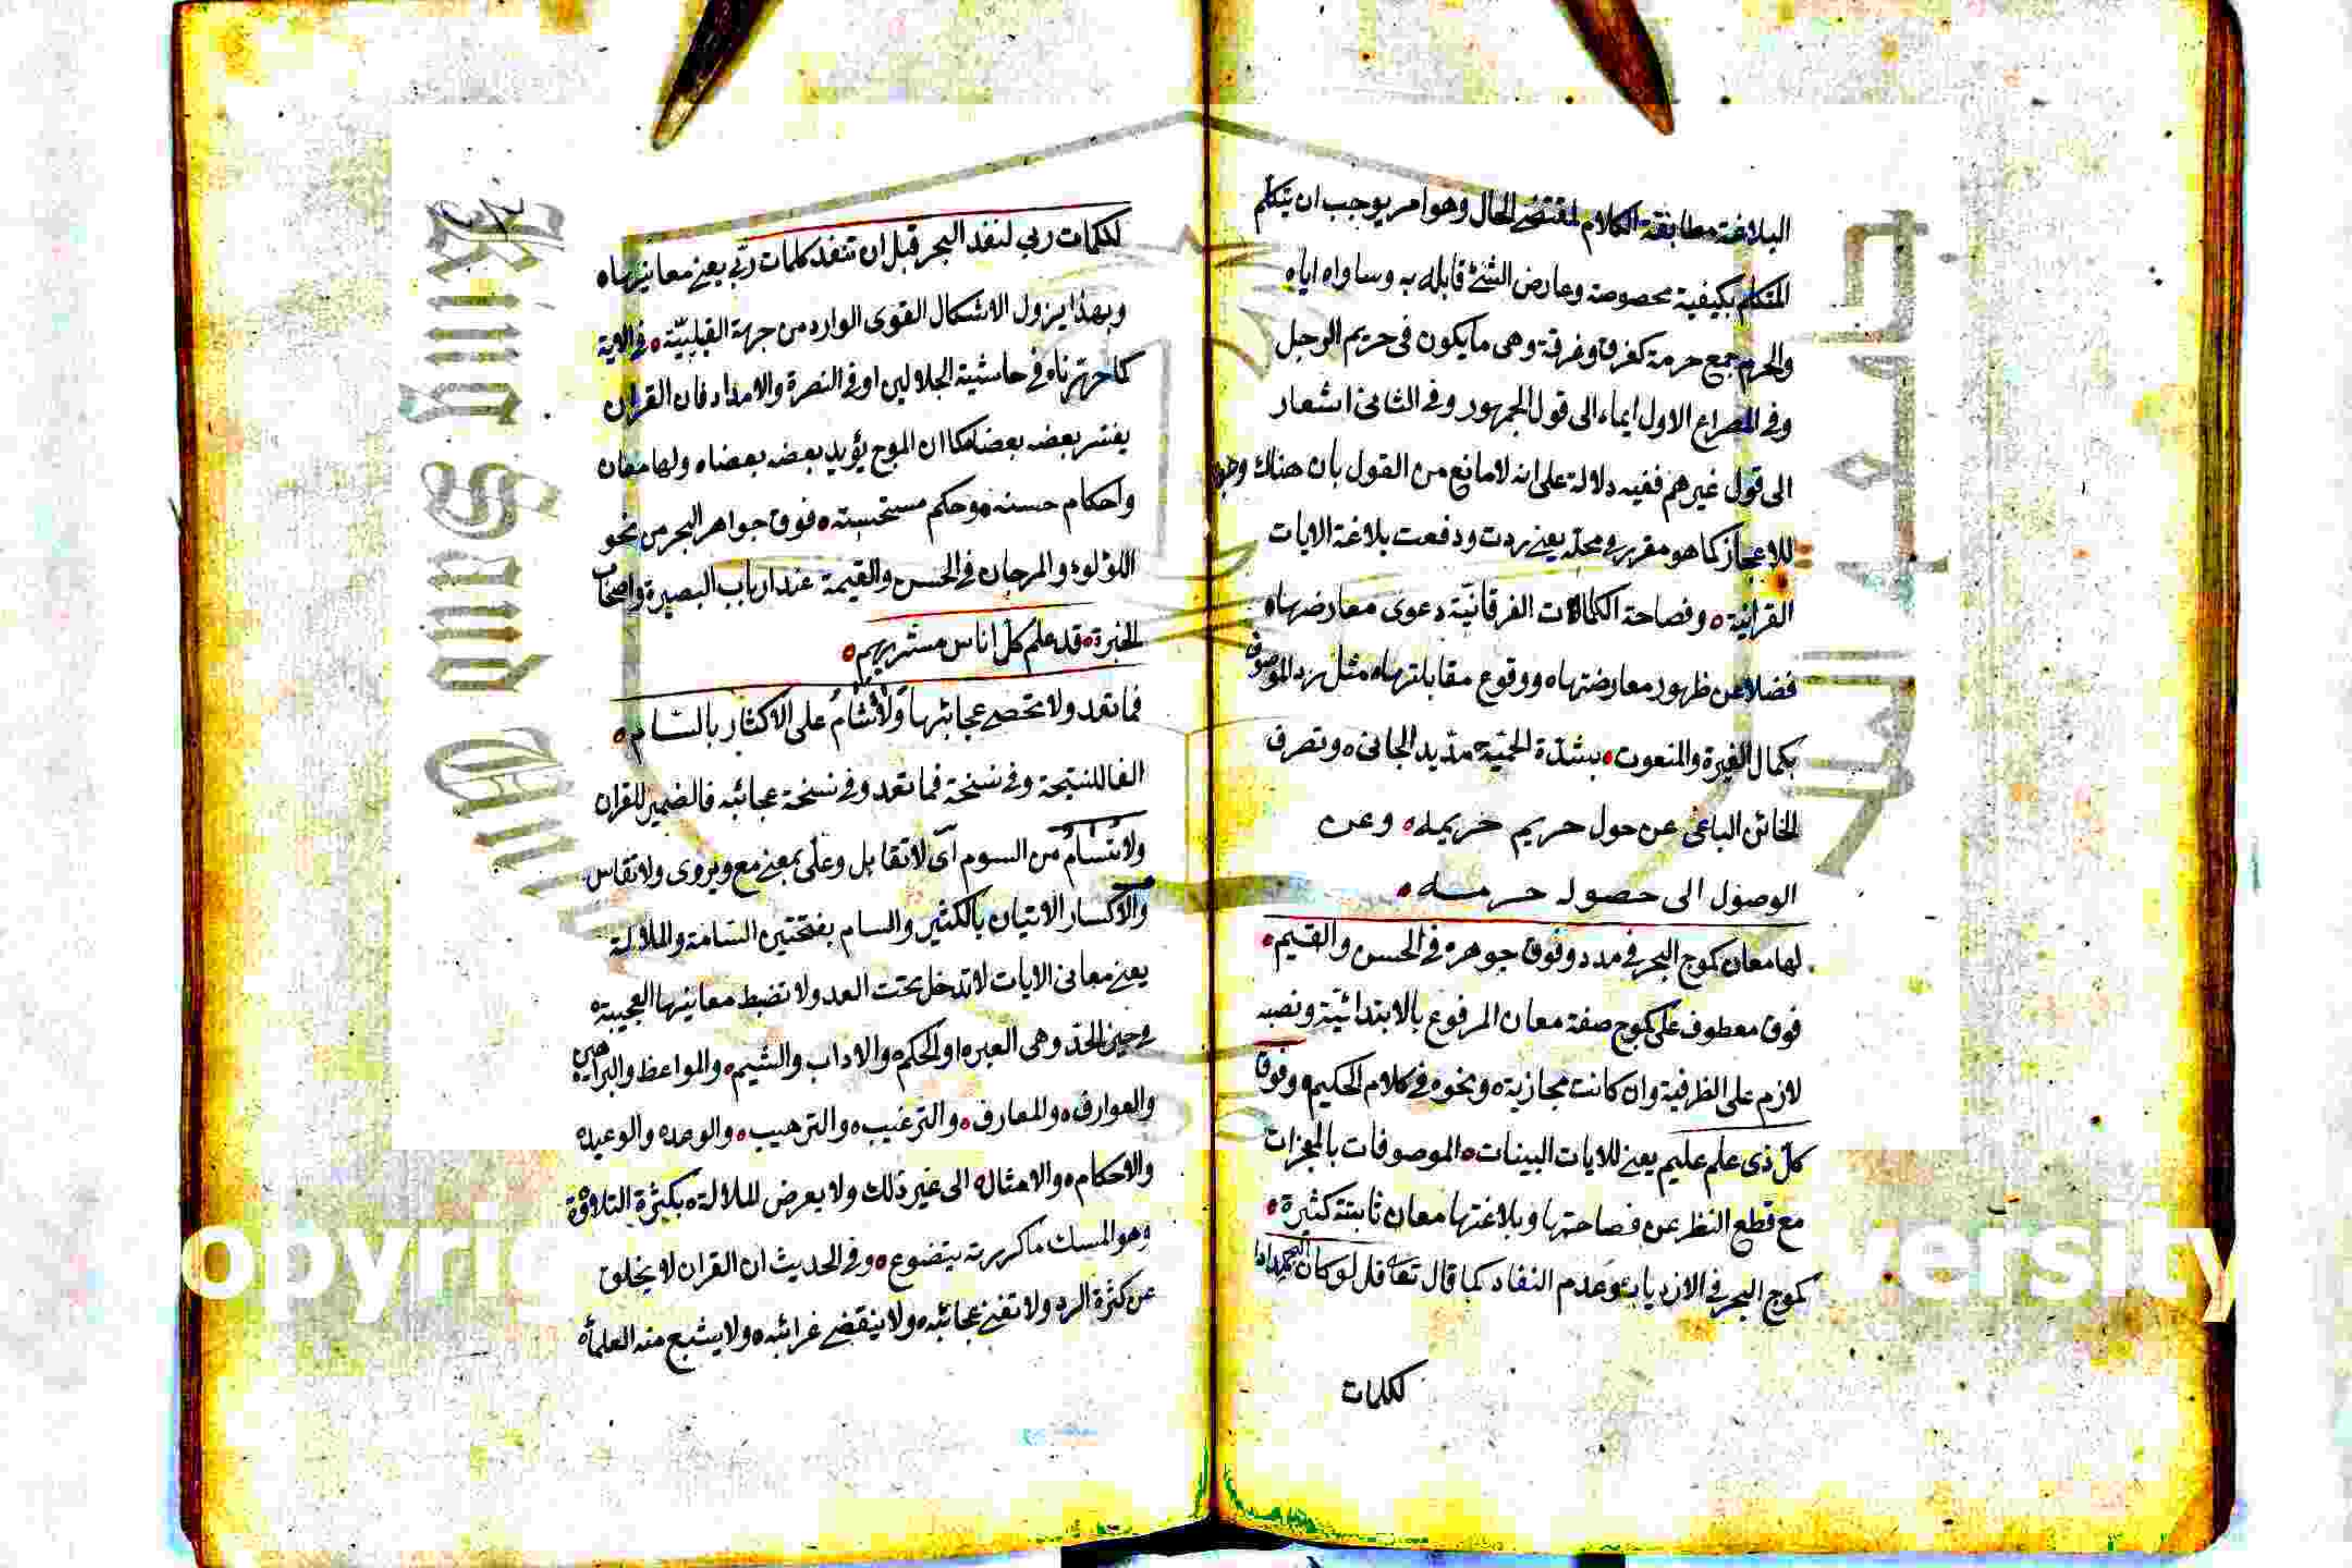 البلاغة مطابقة الكلام لمقتضى الحال وهو امر يوجب ان يتكلم
المتكلم بكيفية مخصوصة وعارض الشئ قابله به وساواه اياه
والحرم جمع حرمة كغرف وغرفة وهى ما يكون فى حريم الرجل
وفى المصراع الاول ايماء الى قول الجمهور وفى الثانى اشعار
الى قول غيرهم ففيه دلالة على انه لا مانع من القول بان هناك
للاعجاز كما هو مقرر فى محله يعنى ردت ودفعت بلاغة الايات
القرانية وفصاحة الكلمات الفرقانية دعوى معارضها
فضلا عن ظهور معارضتها ووقوع مقابلتها مثل رد الموصوف
بكمال الغيرة والمنعوت بشدة الحمية مديد الجانى وتصرف
الخائن الباغى عن حول حريم حريمه وعن
الوصول الى حصول حرمه
لها معان كموج البحر فى مدد وفوق جوهره فى الحسن والقيم
فوق معطوف على كموج صفة معان المرفوع بالابتدائية ونصبه
لازم على الظرفية وان كانت مجازية ونحوه فى كلام الحكيم وفوق
كل ذى علم عليم يعنى للايات البينات الموصوفات بالمعجزات
مع قطع النظر عن فصاحتها وبلاغتها معان ثابتة كثيرة
كموج البحر فى الازدياد وعدم النفاد كما قال تعالى قل لو كان البحر مدادا
لكلمات
لكلمات ربي لنفد البحر قبل ان تنفد كلمات ربي يعنى معانيها
وبهذا يزول الاشكال القوى الوارد من جهة القبلية فى الاية
كما حررناه فى حاشية الجلالين او فى النصرة والامداد فان القران
يفسر بعضه بعضا كما ان الموج يؤيد بعضه بعضا ولها معان
واحكام حسنة وحكم مستحسنة فوق جواهر البحر من نحو
اللؤلؤ والمرجان فى الحسن والقيمة عند ارباب البصيرة واصحاب
الخبرة قد علم كل اناس مشربهم
فما تعد ولا تحصى عجائبها ولا تسام على الاكثار بالسام
الفا للنتيجة وفى نسخة فما تعد وفى نسخة عجائبه فالضمير للقران
ولا تسام من السوم اى لا تقابل وعلى بمعنى مع ويروى ولا تقاس
والاكسار الاتيان بالكثير والسام بفتحتين السامة والملالة
يعنى معانى الايات لا تدخل تحت العد ولا تضبط معانيها العجيبة
فى حيز الحد وهى العبر او الحكم والاداب والشيم والمواعظ والبراهين
والعوارف والمعارف والترغيب والترهيب والوعد والوعيد
والاحكام والامثال الى غير ذلك ولا يعرض الملالة بكثرة التلاوة
وهو المسك ما كررته يتضوع وفى الحديث ان القران لا يخلق
عن كثرة الرد ولا تفنى عجائبه ولا ينقضى غرائبه ولا يشبع منه العلماء